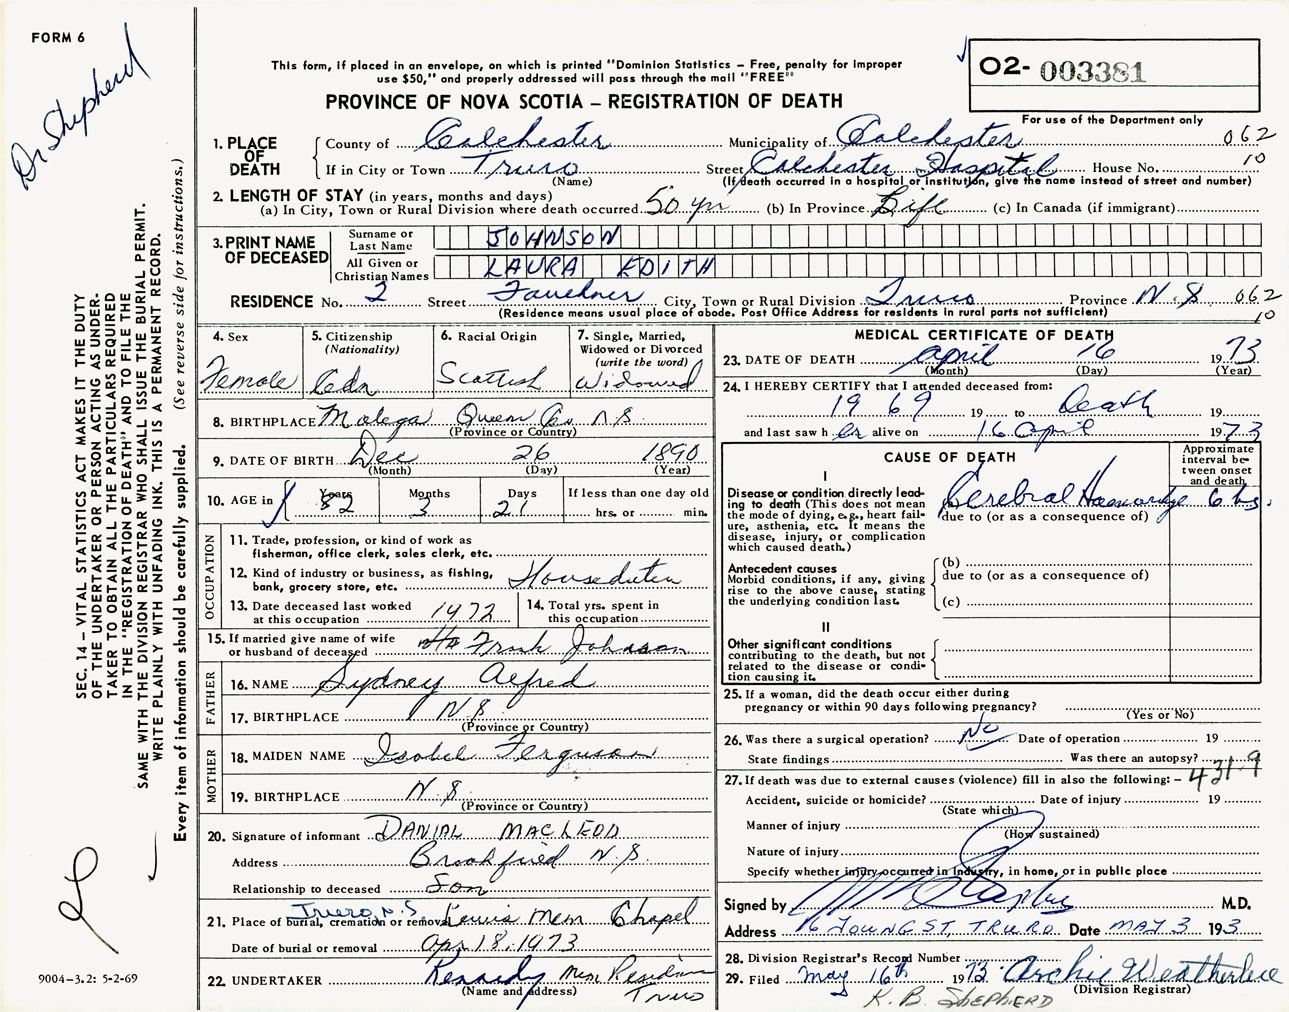 FORM 6
Dr Shepherd
This form, if placed in an envelope, on which is printed "Dominion Statistics – Free, penalty for improper
use $50," and properly addressed will pass through the mail "FREE"
PROVINCE OF NOVA SCOTIA – REGISTRATION OF DEATH
O2- 003381
For use of the Department only
1. PLACE OF DEATH
County of Colchester Municipality of Colchester 062
If in City or Town Truro Street Colchester Hospital House No. 10
(Name) (If death occurred in a hospital or institution, give the name instead of street and number)
2. LENGTH OF STAY (in years, months and days)
(a) In City, Town or Rural Division where death occurred 50 yrs (b) In Province Life (c) In Canada (if immigrant)
3. PRINT NAME OF DECEASED
Surname or Last Name JOHNSON
All Given or Christian Names LAURA EDITH
RESIDENCE No. 2 Street Faulkner City, Town or Rural Division Truro Province N.S. 062
(Residence means usual place of abode. Post Office Address for residents in rural parts not sufficient) 10
4. Sex
Female
5. Citizenship
(Nationality)
Cdn
6. Racial Origin
Scottish
7. Single, Married,
Widowed or Divorced
(write the word)
Widowed
8. BIRTHPLACE Molega Queen Co N.S
(Province or Country)
9. DATE OF BIRTH Dec 26 1890
(Month) (Day) (Year)
10. AGE in Years Months Days If less than one day old
82 3 21 hrs. or min.
OCCUPATION
11. Trade, profession, or kind of work as
fisherman, office clerk, sales clerk, etc.
12. Kind of industry or business, as fishing,
bank, grocery store, etc. Houseduties
13. Date deceased last worked
at this occupation 1972
14. Total yrs. spent in
this occupation
15. If married give name of wife
or husband of deceased Frank Johnson
FATHER
16. NAME Sydney Alfred
17. BIRTHPLACE N.S
(Province or Country)
MOTHER
18. MAIDEN NAME Isabel Ferguson
19. BIRTHPLACE N.S
(Province or Country)
20. Signature of informant DANIAL MACLEOD
Address Brookfield N.S.
Relationship to deceased Son
21. Place of burial, cremation or removal Truro, N.S Lewis Mem Chapel
Date of burial or removal Apr 18, 1973
22. UNDERTAKER Kennedy Mem Residence
(Name and address) Truro
MEDICAL CERTIFICATE OF DEATH
23. DATE OF DEATH April 16 1973
(Month) (Day) (Year)
24. I HEREBY CERTIFY that I attended deceased from:
1969 19 to Death 19
and last saw h er alive on 16 April 1973
CAUSE OF DEATH
Approximate
interval be-
tween onset
and death
I
Disease or condition directly lead-
ing to death (This does not
mean the mode of dying, e.g., heart fail-
ure, asthenia, etc. It means the
disease, injury, or complication
which caused death.)
(a) Cerebral Hemorrhage 6 hrs.
due to (or as a consequence of)
Antecedent causes
Morbid conditions, if any, giving
rise to the above cause, stating
the underlying condition last.
(b)
due to (or as a consequence of)
(c)
II
Other significant conditions
contributing to the death, but not
related to the disease or condi-
tion causing it.
25. If a woman, did the death occur either during
pregnancy or within 90 days following pregnancy?
(Yes or No)
26. Was there a surgical operation? No Date of operation 19
State findings Was there an autopsy?
27. If death was due to external causes (violence) fill in also the following: – 431.9
Accident, suicide or homicide? Date of injury 19
(State which)
Manner of injury
(How sustained)
Nature of injury
Specify whether injury occurred in industry, in home, or in public place
Signed by M.D.
Address 16 YOUNG ST, TRURO Date MAY 3 193
28. Division Registrar's Record Number
29. Filed May 16th 1973 Archie Weatherbee
(Division Registrar)
K. B. SHEPHERD
SEC. 14 – VITAL STATISTICS ACT MAKES IT THE DUTY
OF THE UNDERTAKER OR PERSON ACTING AS UNDER-
TAKER TO OBTAIN ALL THE PARTICULARS REQUIRED
IN THE "REGISTRATION OF DEATH" AND TO FILE THE
SAME WITH THE DIVISION REGISTRAR WHO SHALL ISSUE THE BURIAL PERMIT.
WRITE PLAINLY WITH UNFADING INK. THIS IS A PERMANENT RECORD.
Every item of information should be carefully supplied. (See reverse side for instructions.)
9004–3.2: 5-2-69